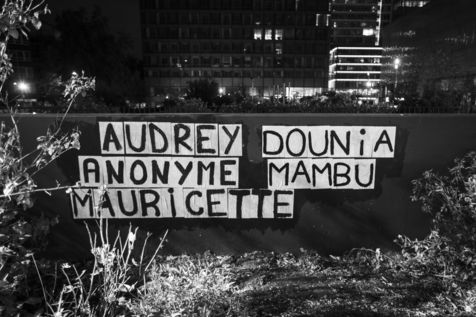 AUDREY DOUNiA
ANONYME MAMBU
MAURiCETTE